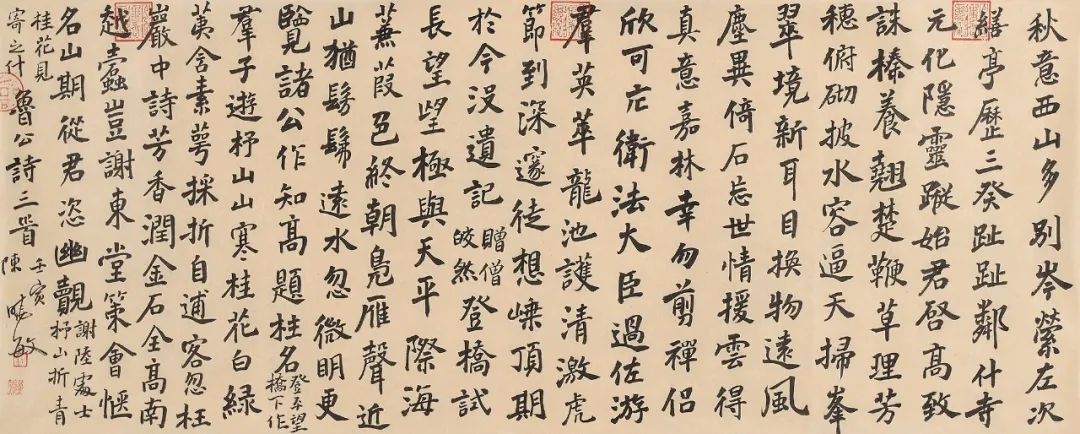 秋意西山多別岑縈左次
繕亭歷三癸趾趾鄰什寺
元化隱靈蹤始君啓高致
誅榛養翹楚鞭草理芳
穗俯砌披水容逼天掃峯
翠境新耳目換物遠風
塵異倚石忘世情援雲得
真意嘉林幸勿剪禪侶
欣可亡衛法大臣過佐游
羣英萃龍池護清激虎
節到深邃徒想嵊頂期
於今沒遺記
贈僧
皎然
登橋試
長望望極與天平際海
蒹葭色終朝鳧雁聲近
山猶髣髴遠水忽微明更
覽諸公作知高題柱名
登平望
橋下作
羣子遊杼山山寒桂花白緑
荑含素萼採折自逋客忽枉
巖中詩芳香潤金石全高南
越蠹豈謝東堂策會愜
名山期從君恣幽覿
謝陸處士
杼山折青
桂花見
寄之什
魯公詩三首
壬寅
陳曉敏